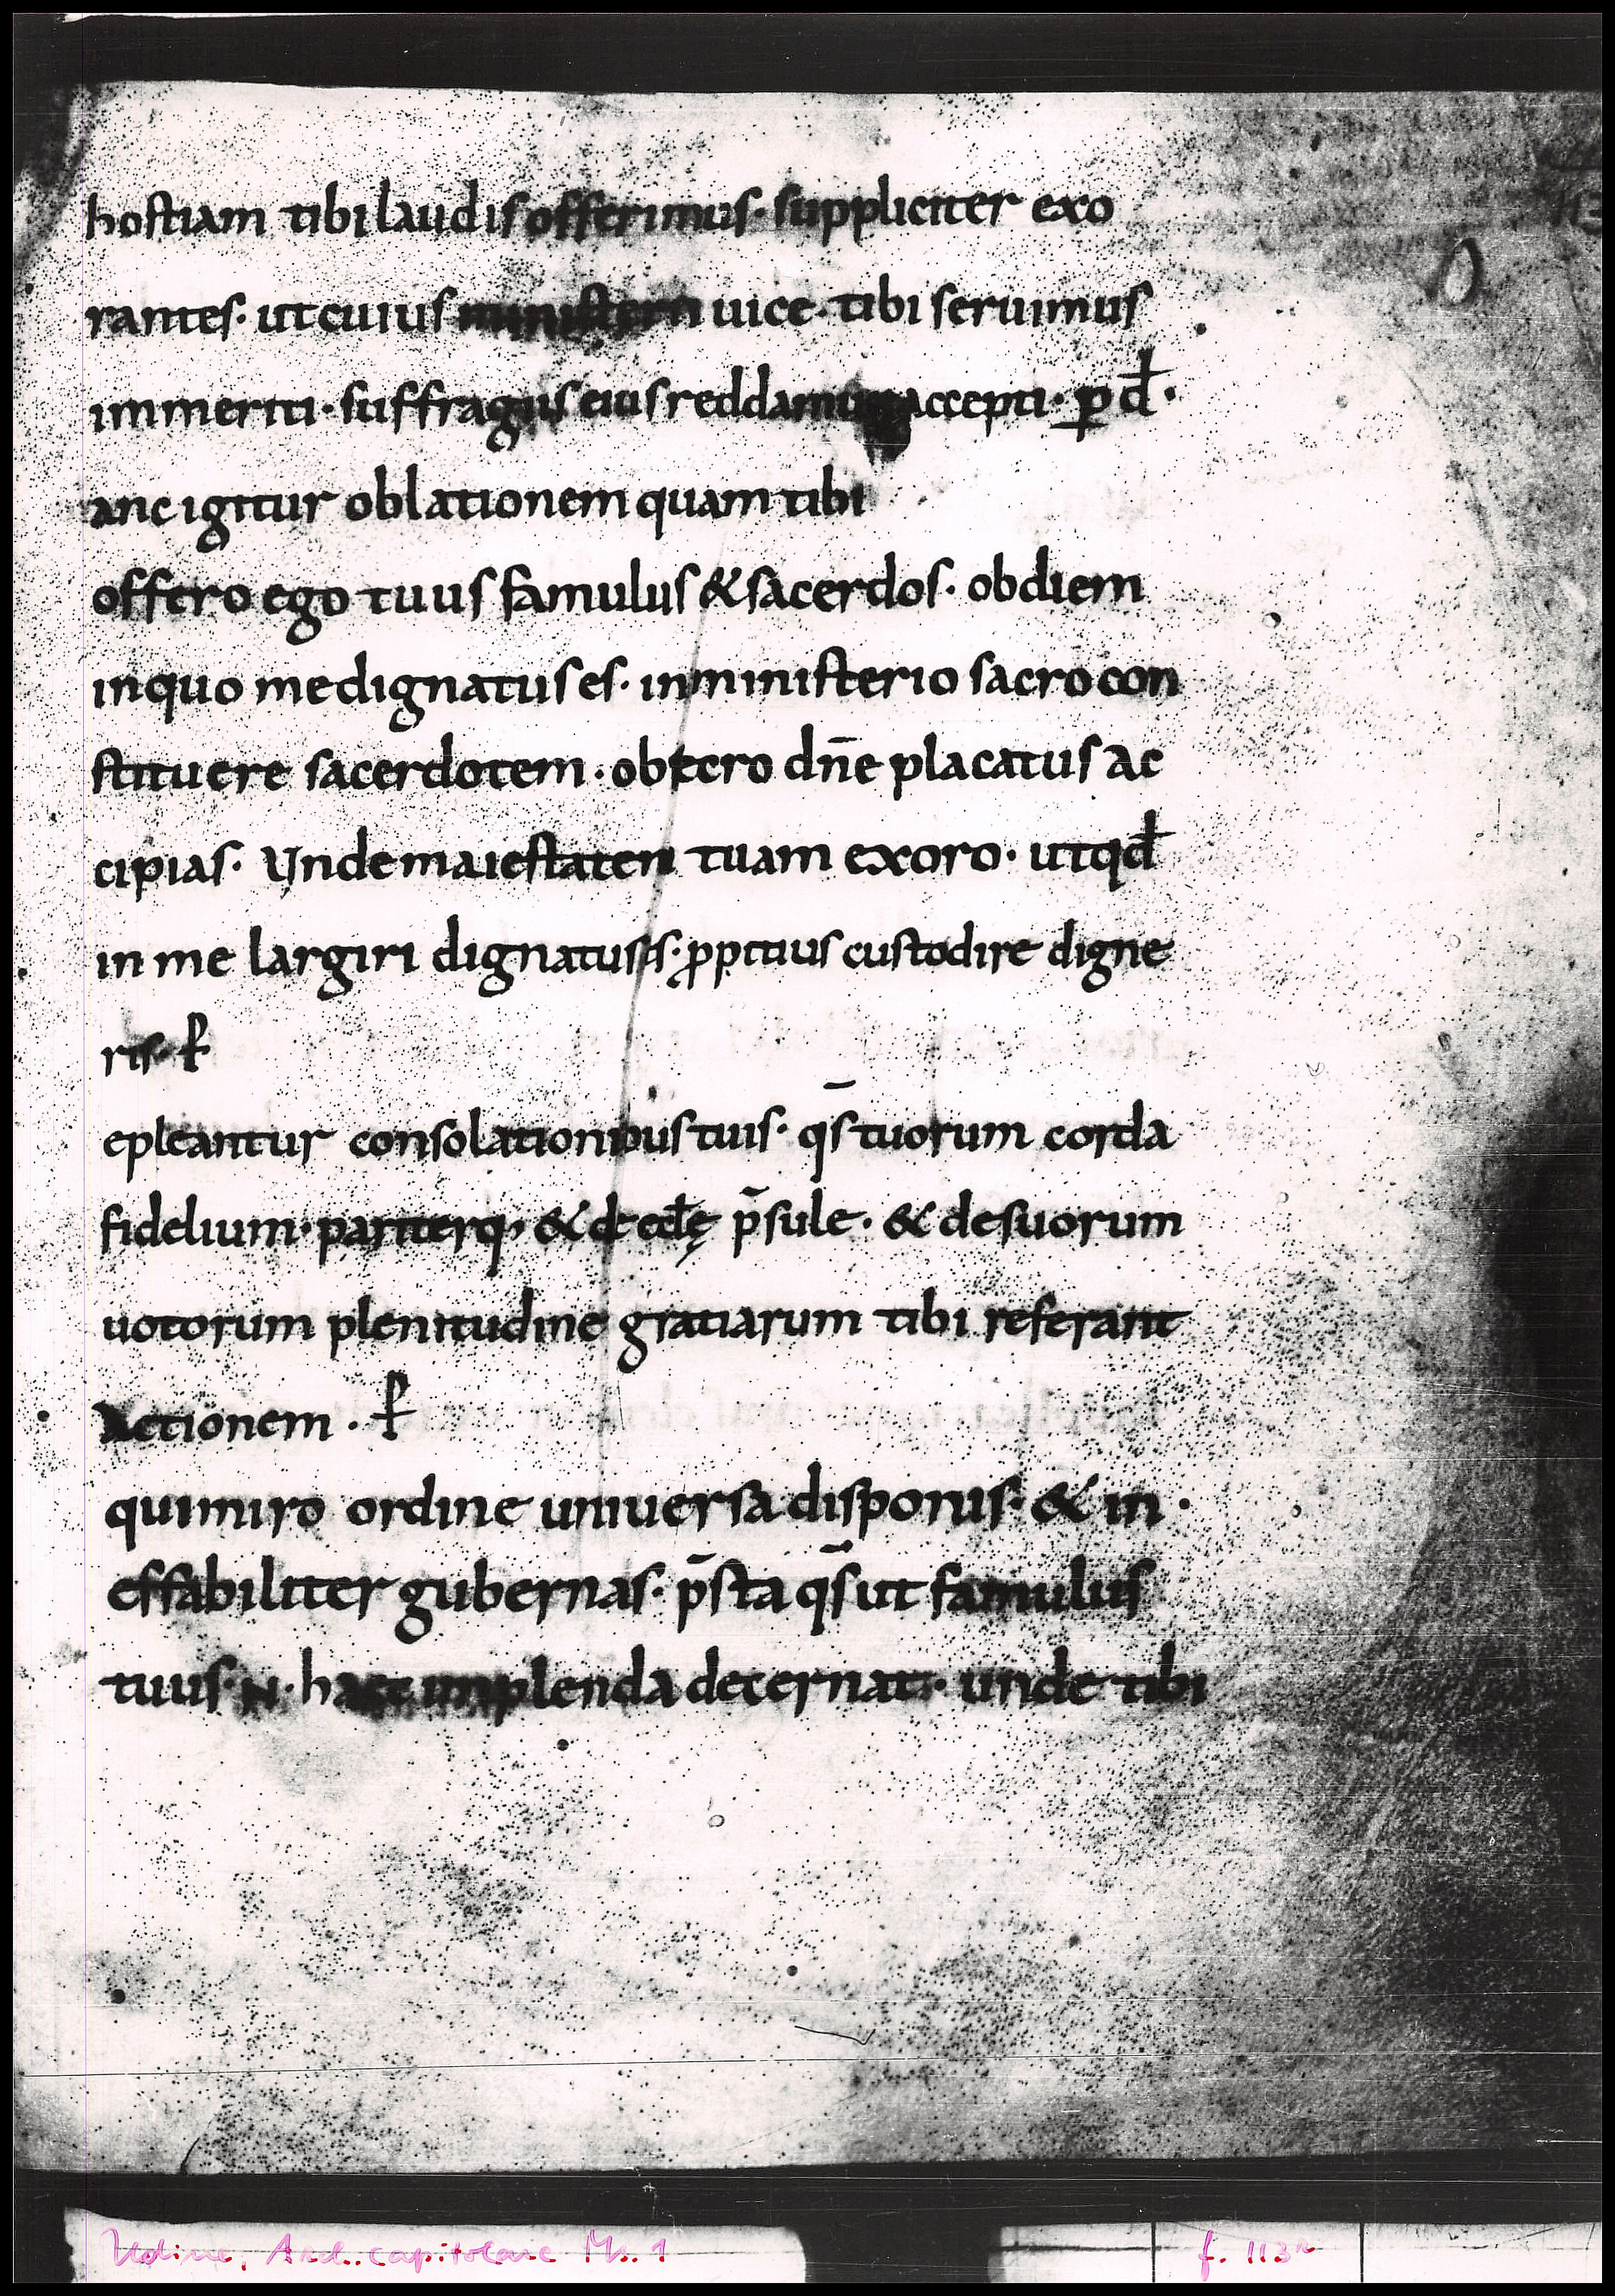 hostiam tibi laudis offerimus· suppliciter exo
rantes· ut cuius ministerii uice· tibi seruimus
immeriti· suffragiis eius reddamur accepti· ꝑ đ·
anc igitur oblationem quam tibi
offero ego tuus famulus & sacerdos· ob diem
in quo me dignatus es· in ministerio sacro con
stituere sacerdotem· obsecro dn̄e placatus ac
cipias· Unde maiestatem tuam exoro· ut qđ
in me largiri dignatus es· ꝓpitius custodire digne
ris·
epleantur consolationibus tuis· qs̄ tuorum corda
fidelium· pariterq; & de eccłę p̄sule· & de suorum
uotorum plenitudine gratiarum tibi referant
Actionem·
qui miro ordine uniuersa disponis· & in·
effabiliter gubernas· p̄sta qs̄ ut famulus
tuus·N· haec implenda decernat· unde tibi
Udine, Arch. capitolare Ms. 1
f. 113r